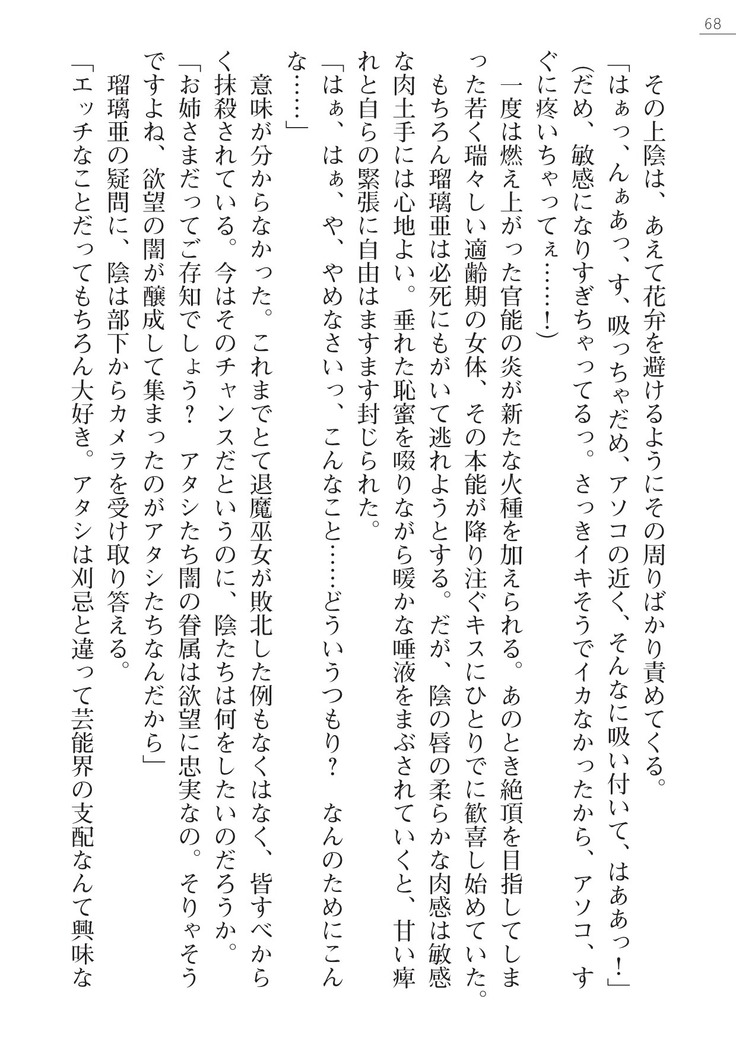 68
その上陰は、あえて花弁を避けるようにその周りばかり責めてくる。
「はぁっ、んぁあっ、す、吸っちゃだめ、アソコの近く、そんなに吸い付いて、はああっ！」
(だめ、敏感になりすぎちゃってるっ。さっきイキそうでイカなかったから、アソコ、す
ぐに疼いちゃってぇ……！)
一度は燃え上がった官能の炎が新たな火種を加えられる。あのとき絶頂を目指してしま
った若く瑞々しい適齢期の女体、その本能が降り注ぐキスにひとりでに歓喜し始めていた。
もちろん瑠璃亜は必死にもがいて逃れようとする。だが、陰の唇の柔らかな肉感は敏感
な肉土手には心地よい。垂れた恥蜜を啜りながら暖かな唾液をまぶされていくと、甘い痺
れと自らの緊張に自由はますます封じられた。
「はぁ、はぁ、や、やめなさいっ、こんなこと……どういうつもり？　なんのためにこん
な……」
意味が分からなかった。これまでとて退魔巫女が敗北した例もなくはなく、皆すべから
く抹殺されている。今はそのチャンスだというのに、陰たちは何をしたいのだろうか。
「お姉さまだってご存知でしょう？　アタシたち闇の眷属は欲望に忠実なの。そりゃそう
ですよね、欲望の闇が醸成して集まったのがアタシたちなんだから」
瑠璃亜の疑問に、陰は部下からカメラを受け取り答える。
「エッチなことだってもちろん大好き。アタシは刈忌と違って芸能界の支配なんて興味な